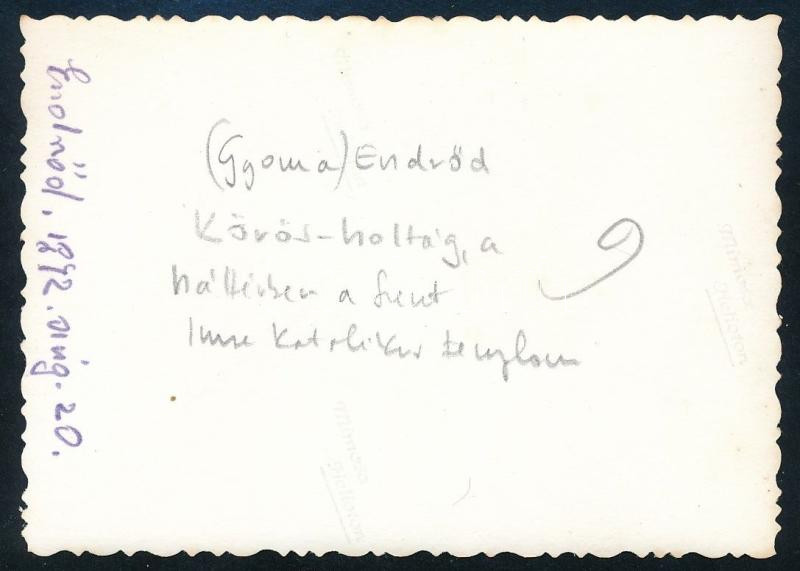 Endrőd, 1942. aug. 20.
(Gyoma) Endrőd
Körös-holtág, a
háttérben a Szent
Imre Katolikus templom
Mimosa
Mimosa